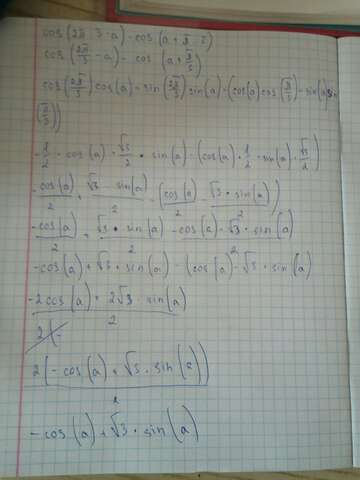 cos(2π/3 - a) - cos(a + π/3)
cos(2π/3 - a) - cos(a + π/3)
cos(2π/3) cos(a) + sin(2π/3) sin(a) - (cos(a) cos(π/3) - sin(a) sin
(π/3))
-1/2 · cos(a) + √3/2 · sin(a) - (cos(a) · 1/2 - sin(a) · √3/2)
-cos(a)/2 + √3 · sin(a)/2 - (cos(a)/2 - √3 · sin(a)/2)
-cos(a)/2 + √3 · sin(a)/2 - cos(a) - √3 · sin(a)/2
-cos(a) + √3 · sin(a) - (cos(a) - √3 · sin(a)
-2cos(a) + 2√3 · sin(a)/2
2(-
2(-cos(a) + √3 · sin(a))/2
-cos(a) + √3 · sin(a)